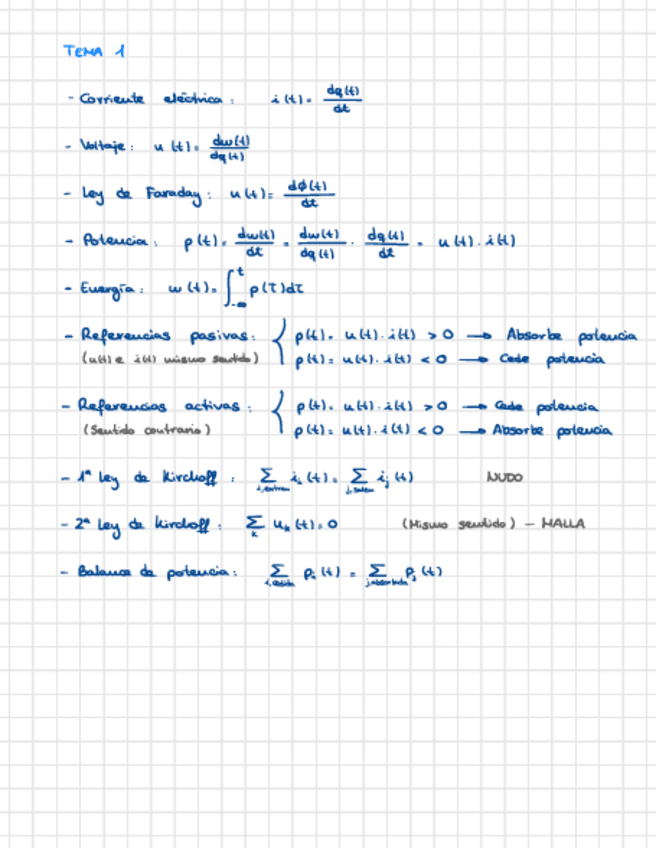 TEMA 1
- Corriente eléctrica: i(t) = dq(t)/dt
- Voltaje: u(t) = dw(t)/dq(t)
- Ley de Faraday: u(t) = dϕ(t)/dt
- Potencia: p(t) = dw(t)/dt = dw(t)/dq(t) · dq(t)/dt = u(t) · i(t)
- Energía: w(t) = ∫_{-∞}^{t} p(τ)dτ
- Referencias pasivas: { p(t) = u(t) · i(t) > 0 → Absorbe potencia
(u(t) e i(t) mismo sentido) p(t) = u(t) · i(t) < 0 → Cede potencia
- Referencias activas: { p(t) = u(t) · i(t) > 0 → Cede potencia
(Sentido contrario) p(t) = u(t) · i(t) < 0 → Absorbe potencia
- 1ª ley de Kirchoff: ∑_{i,entran} i_i(t) = ∑_{j,salen} i_j(t) NUDO
- 2ª ley de Kirchoff: ∑_k u_k(t) = 0 (Mismo sentido) - MALLA
- Balance de potencia: ∑_{i,cedida} p_i(t) = ∑_{j,absorbida} p_j(t)